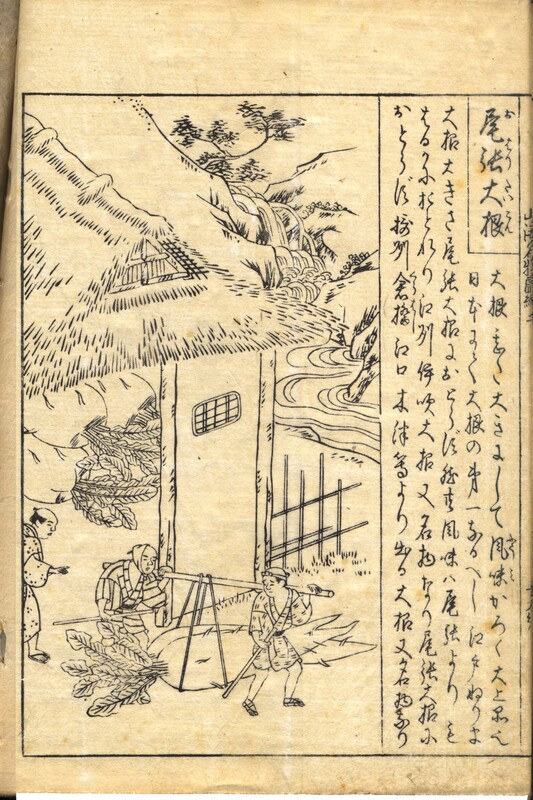 尾張大根
おはりだいこん
大根甚だ大きにして風味かろく大上品也
日本にて大根の第一なるべし江戸ねりま
大根大きさ尾張大根におとらず然共風味ハ尾張よりも
はるかにおとれり江州伊吹大根又名物なり尾張大根に
おとらず摂州倉橋江口木津等より出る大根又名物なり